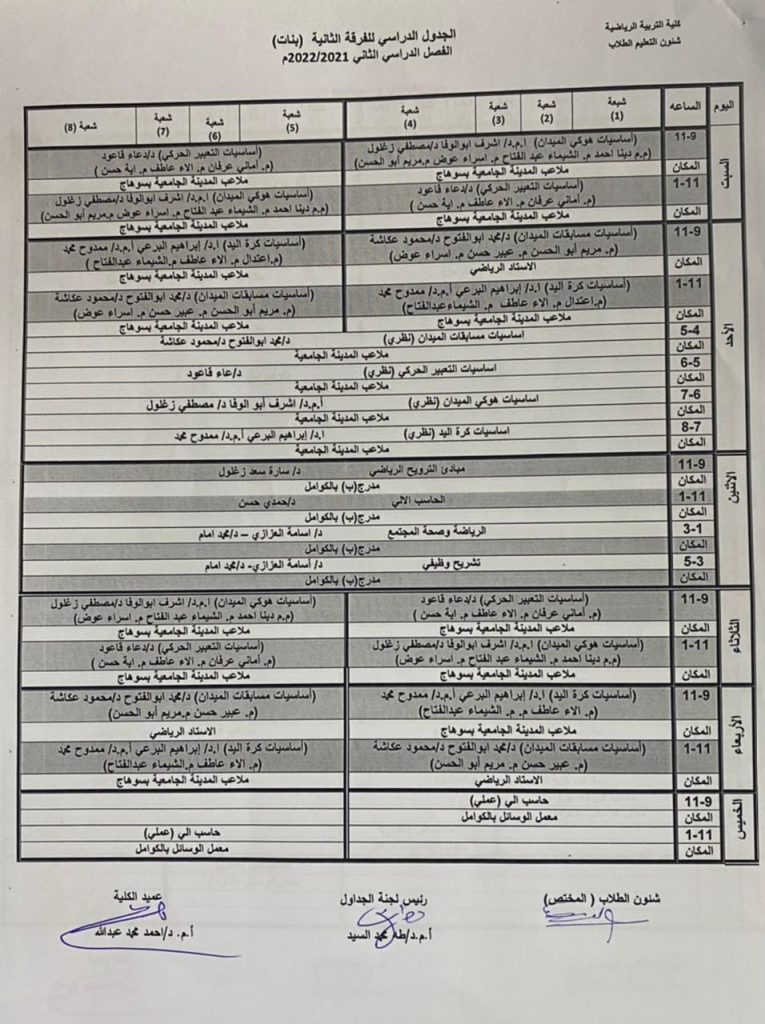 كلية التربية الرياضية
شئون التعليم الطلاب
الجدول الدراسي للفرقة الثانية (بنات)
الفصل الدراسي الثاني 2022/2021م
اليوم الساعه شعبة (1) شعبة (2) شعبة (3) شعبة (4) شعبة (5) شعبة (6) شعبة (7) شعبة (8)
السبت
11-9
(أساسيات هوكي الميدان) ا.م.د/ اشرف ابوالوفا د/مصطفي زغلول
(م.م دينا احمد م. الشيماء عبد الفتاح م. اسراء عوض م.مريم أبو الحسن)
(أساسيات التعبير الحركي) د/دعاء قاعود
(م. أماني عرفان م. الاء عاطف م. اية حسن)
المكان
ملاعب المدينة الجامعية بسوهاج
ملاعب المدينة الجامعية بسوهاج
1-11
(أساسيات التعبير الحركي) د/دعاء قاعود
(م. أماني عرفان م. الاء عاطف م. اية حسن)
(أساسيات هوكي الميدان) ا.م.د/ اشرف ابوالوفا د/مصطفي زغلول
(م.م دينا احمد م. الشيماء عبد الفتاح م. اسراء عوض م.مريم أبو الحسن)
المكان
ملاعب المدينة الجامعية بسوهاج
ملاعب المدينة الجامعية بسوهاج
الأحد
11-9
(أساسيات مسابقات الميدان) د/محمد ابوالفتوح د/محمود عكاشة
(م. مريم أبو الحسن م. عبير حسن م. اسراء عوض)
(أساسيات كرة اليد) ا.د/ إبراهيم البرعي أ.م.د/ ممدوح محمد
(م.اعتدال م. الاء عاطف م.الشيماء عبدالفتاح)
المكان
الاستاد الرياضي
ملاعب المدينة الجامعية بسوهاج
1-11
(أساسيات كرة اليد) ا.د/ إبراهيم البرعي أ.م.د/ ممدوح محمد
(م.اعتدال م. الاء عاطف م. الشيماءعبدالفتاح)
(أساسيات مسابقات الميدان) د/محمد ابوالفتوح د/محمود عكاشة
(م. مريم أبو الحسن م. عبير حسن م. اسراء عوض)
المكان
ملاعب المدينة الجامعية بسوهاج
ملاعب المدينة الجامعية بسوهاج
5-4
اساسيات مسابقات الميدان (نظري) د/محمد ابوالفتوح د/محمود عكاشة
المكان
ملاعب المدينة الجامعية
6-5
اساسيات التعبير الحركي (نظري) د/دعاء قاعود
المكان
ملاعب المدينة الجامعية
7-6
اساسيات هوكي الميدان (نظري) أ.م.د/ اشرف أبو الوفا د/ مصطفي زغلول
المكان
ملاعب المدينة الجامعية
8-7
اساسيات كرة اليد (نظري) ا.د/ إبراهيم البرعي أ.م.د/ ممدوح محمد
المكان
ملاعب المدينة الجامعية
الاثنين
11-9
مبادئ الترويح الرياضي د/ سارة سعد زغلول
المكان
مدرج(ب) بالكوامل
1-11
الحاسب الالي د/حمدي حسن
المكان
مدرج(ب) بالكوامل
3-1
الرياضة وصحة المجتمع د/ اسامة العزازي – د/محمد امام
المكان
مدرج(ب) بالكوامل
5-3
تشريح وظيفي د/ أسامة العزازي- د/محمد امام
المكان
مدرج(ب) بالكوامل
الثلاثاء
11-9
(أساسيات التعبير الحركي) د/دعاء قاعود
(م. أماني عرفان م. الاء عاطف م. اية حسن)
(أساسيات هوكي الميدان) ا.م.د/ اشرف ابوالوفا د/مصطفي زغلول
(م.م دينا احمد م. الشيماء عبد الفتاح م. اسراء عوض)
المكان
ملاعب المدينة الجامعية بسوهاج
ملاعب المدينة الجامعية بسوهاج
1-11
(أساسيات هوكي الميدان) ا.م.د/ اشرف ابوالوفا د/مصطفي زغلول
(م.م دينا احمد م. الشيماء عبد الفتاح م. اسراء عوض)
(أساسيات التعبير الحركي) د/دعاء قاعود
(م. أماني عرفان م. الاء عاطف م. اية حسن)
المكان
ملاعب المدينة الجامعية بسوهاج
ملاعب المدينة الجامعية بسوهاج
الأربعاء
11-9
(أساسيات كرة اليد) ا.د/ إبراهيم البرعي أ.م.د/ ممدوح محمد
(م. الاء عاطف م. م. الشيماء عبدالفتاح)
(أساسيات مسابقات الميدان) د/محمد ابوالفتوح د/محمود عكاشة
(م. عبير حسن م.مريم أبو الحسن)
المكان
ملاعب المدينة الجامعية بسوهاج
الاستاد الرياضي
1-11
(أساسيات مسابقات الميدان) د/محمد ابوالفتوح د/محمود عكاشة
(م. عبير حسن م. مريم أبو الحسن)
(أساسيات كرة اليد) ا.د/ إبراهيم البرعي أ.م.د/ ممدوح محمد
(م. الاء عاطف م.الشيماء عبدالفتاح)
المكان
الاستاد الرياضي
ملاعب المدينة الجامعية بسوهاج
الخميس
11-9
حاسب الي (عملي)
المكان
معمل الوسائل بالكوامل
1-11
حاسب الي (عملي)
المكان
معمل الوسائل بالكوامل
شئون الطلاب ( المختص)
رئيس لجنة الجداول
عميد الكلية
أ.م.د/طه محمد السيد
أ.م. د/احمد محمد عبدالله